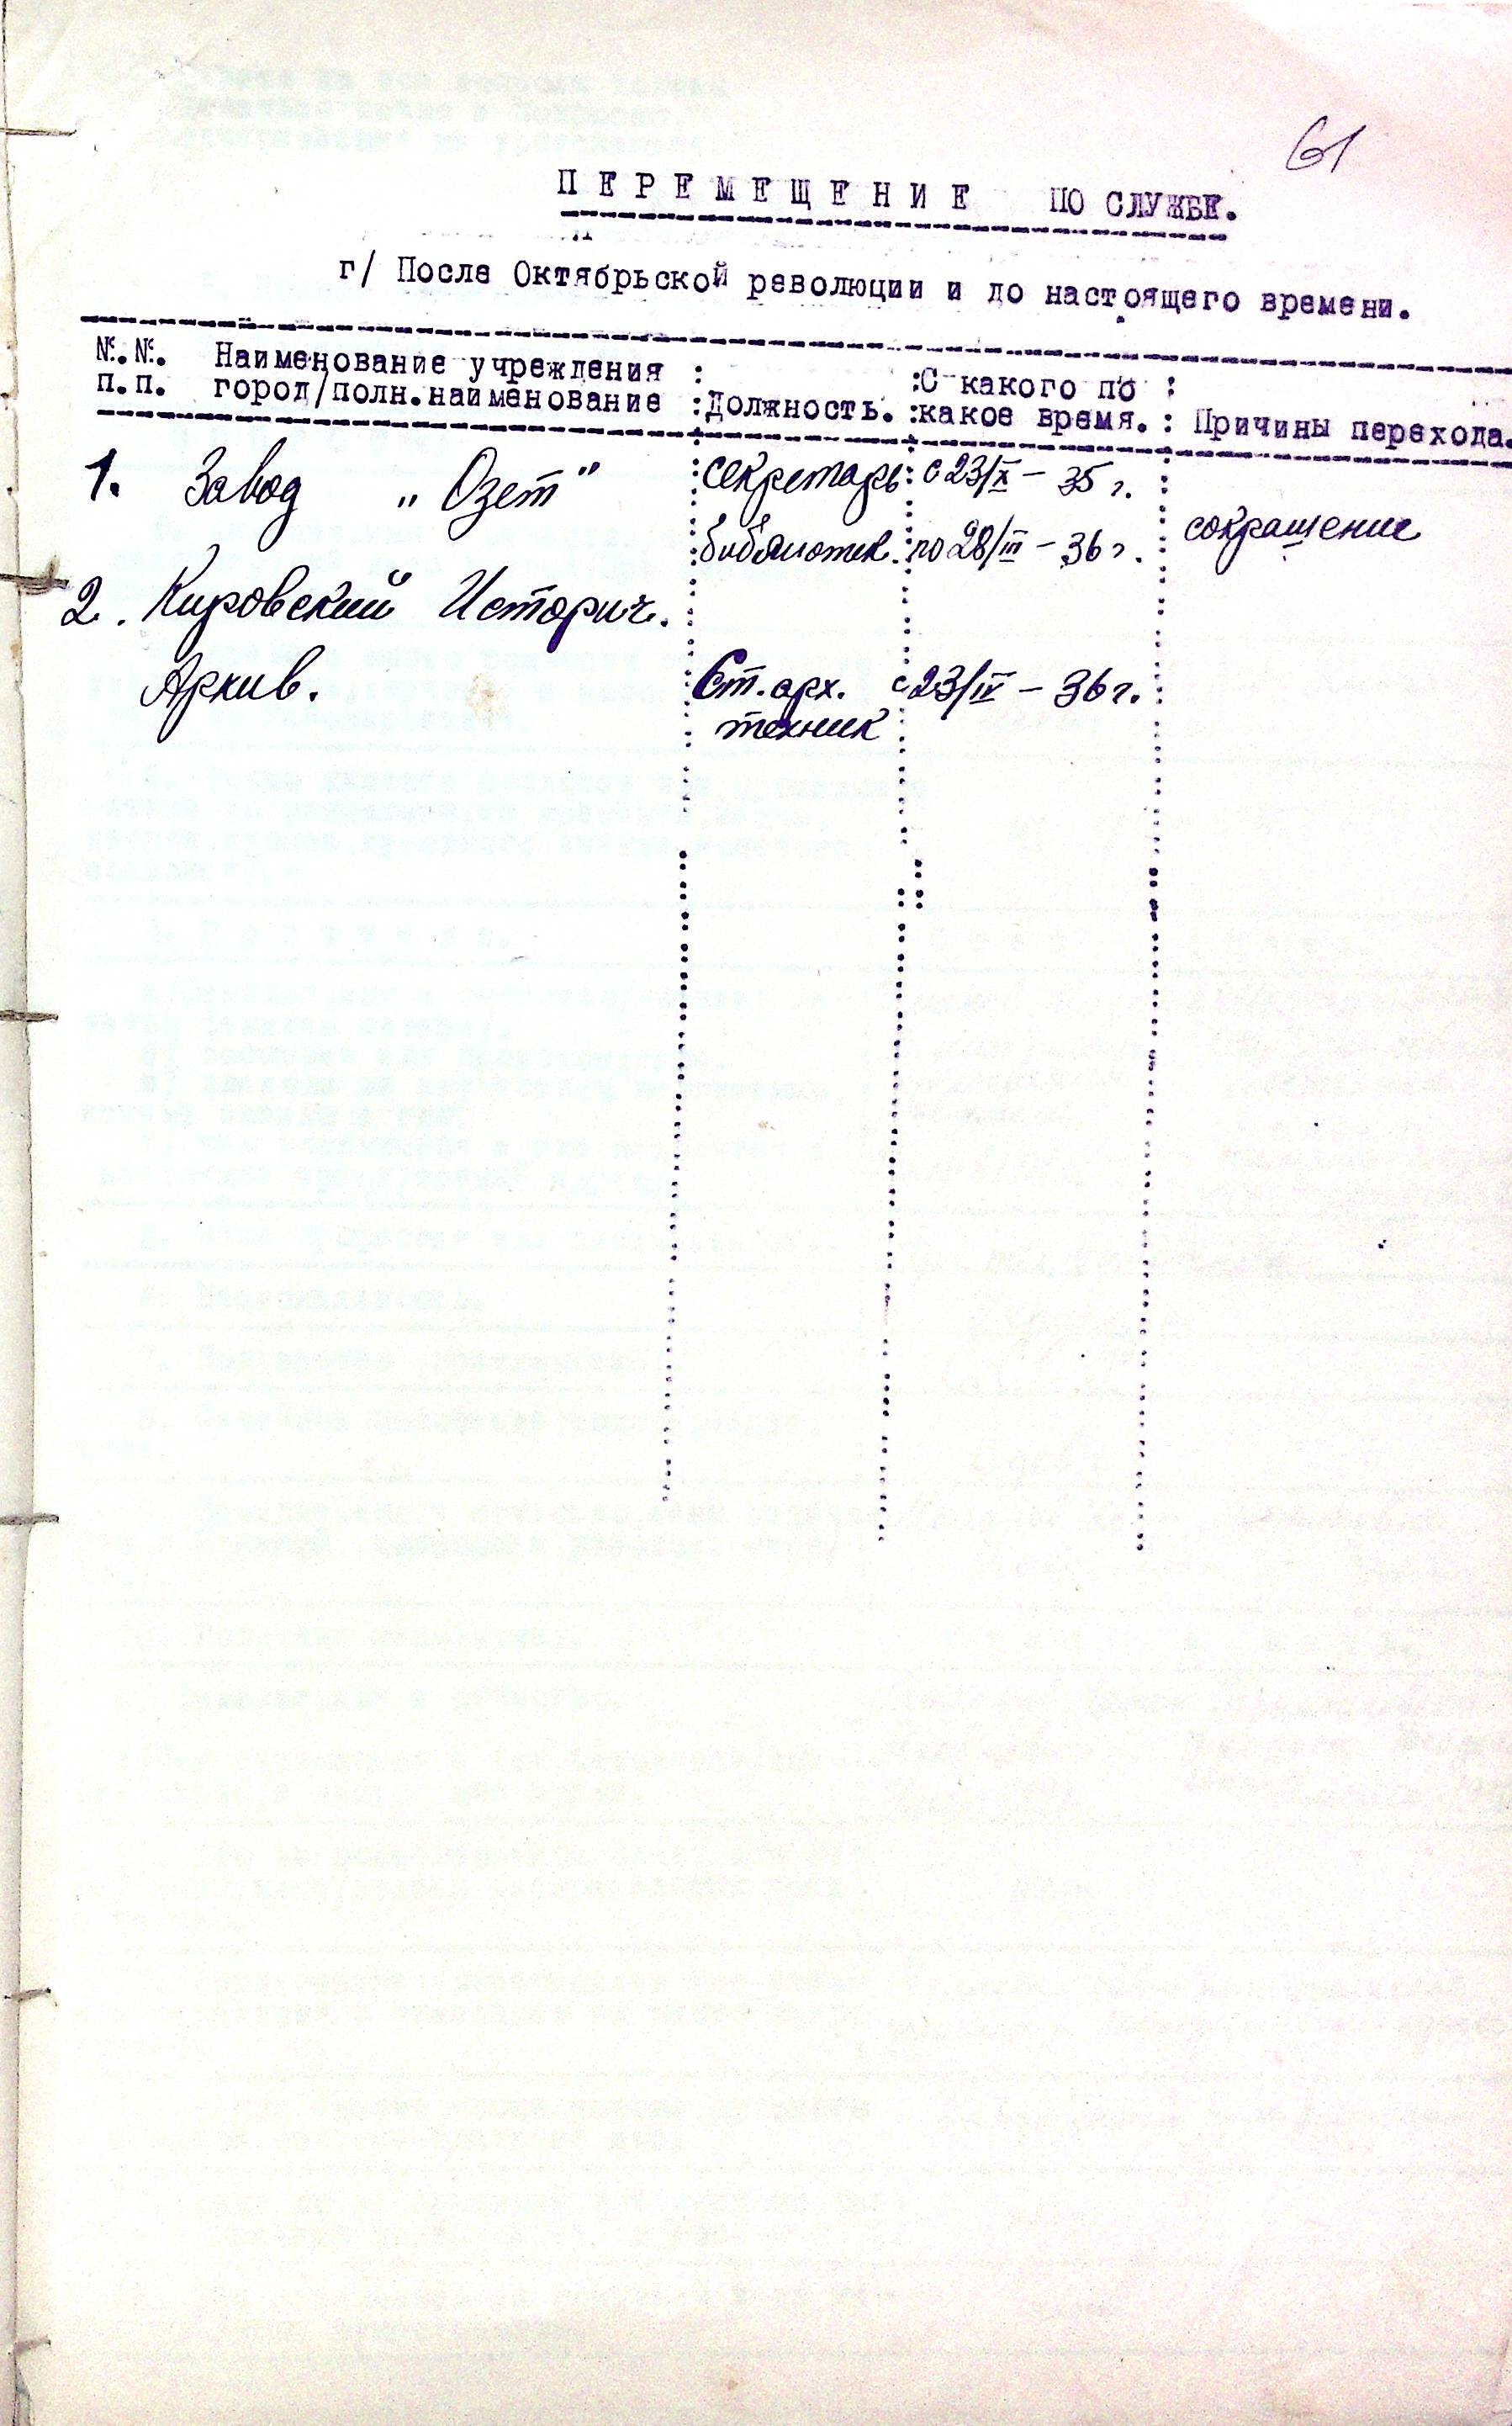 61
ПЕРЕМЕЩЕНИЕ ПО СЛУЖБЕ.
г/ После Октябрьской революции и до настоящего времени.
№.№. Наименование учреждения : :С какого по :
п.п. город/полн.наименование :Должность. :какое время. : Причины перехода.
1. Завод „Озет" секретарь с 23/X - 35 г.
библиотек. по 28/III - 36 г. сокращение
2. Кировский Историч.
Архив. Ст. арх. с 23/IV - 36 г.
техник